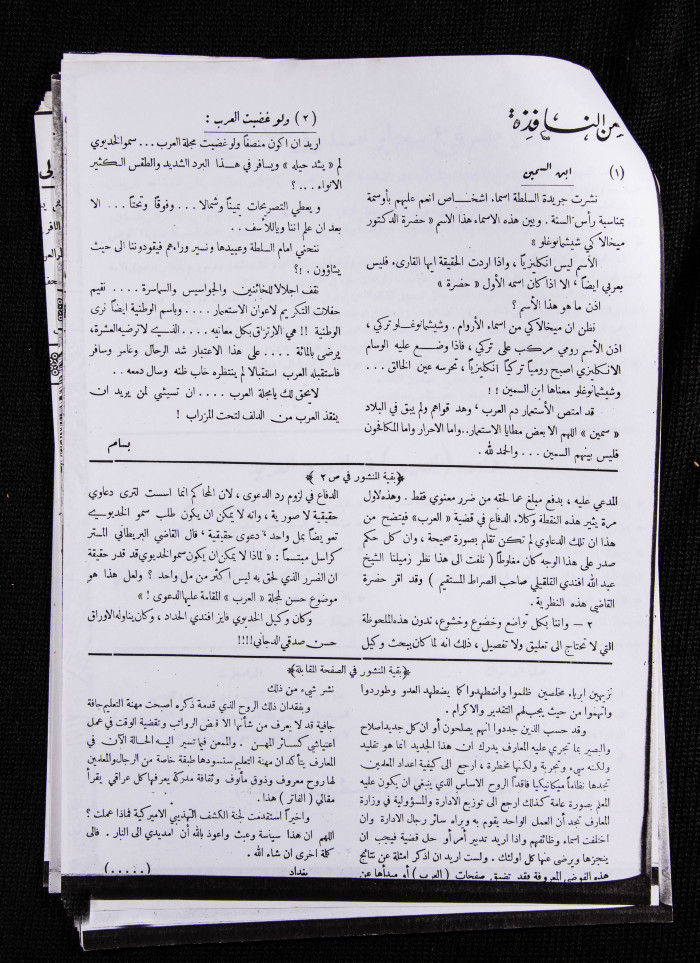 من النافذة
(١) ابن السمين
نشرت جريدة السلطة اسماء اشخاص انعم عليهم بأوسمة
بمناسبة رأس السنة . وبين هذه الاسماء هذا الاسم « حضرة الدكتور
ميخالاكي شيشمانوغلو »
الأسم ليس انكليزياً ، واذا اردت الحقيقة ايها القارىء فليس
بعربي ايضاً ، الا اذا كان اسمه الأول « حضرة »
اذن ما هو هذا الأسم ؟
نظن ان ميخالاكي من اسماء الأروام . وشيشمانوغلو تركي ،
اذن الأسم رومي مركب على تركي ، فاذا وضع عليه الوسام
الانكليزي اصبح رومياً تركياً انكليزياً ، تحرسه عين الخالق ...
وشيشمانوغلو معناها ابن السمين ! !
قد امتص الأستعمار دم العرب ، وهد قواهم ولم يبق في البلاد
« سمين » اللهم الا بعض مطايا الاستعمار .. واما الاحرار واما المكافحون
فليس بينهم السمين ... والحمد لله .
(٢) ولو غضبت العرب :
اريد ان اكون منصفاً ولو غضبت مجلة العرب ... سمو الخديوي
لم « يشد حيله » ويسافر في هذا البرد الشديد والطقس الكثير
الانواء ... ؟
و يعطي التصريحات يميناً وشمالا ... وفوقاً وتحتاً ... الا
بعد ان علم اننا وياللأسف ..
ننحني امام السلطة وعبيدها ونسير وراءهم فيقودوننا الى حيث
يشاؤون . !؟
نقف اجلالا للخائنين والجواسيس والسماسرة .... نقيم
حفلات التكريم لاعوان الاستعمار .... وباسم الوطنية ايضاً نرى
الوطنية !! هي الارتزاق بكل معانيه .... الذي لا ترضيه العشرة ،
يرضى بالمائة .... على هذا الاعتبار شد الرحال وغامر وسافر
فاستقبله العرب استقبالا لم ينتظره خاب ظنه وسال دمعه ..
لا يحق لك يا مجلة العرب .... ان تسيئي لمن يريد ان
ينقذ العرب من الدلف لتحت المزراب !
بسام
﴿بقية المنشور في ص ٢﴾
المدعي عليه ، بدفع مبلغ عما لحقه من ضرر معنوي فقط . وهذه لاول
مرة يثير هذه النقطة وكلاء الدفاع في قضية « العرب » فيتضح من
هذا ان تلك الدعاوي لم تكن تقام بصورة صحيحة ، وان كل حكم
صدر على هذا الوجه كان مغلوطاً ( نلفت الى هذا نظر زميلنا الشيخ
عبد الله افندي القلقيلي صاحب الصراط المستقيم ) وقد اقر حضرة
القاضي هذه النظرية .
٢ — واننا بكل تواضع وخضوع وخشوع، ندون هذه الملحوظة
التي لا تحتاج الى تعليق ولا تفصيل ، ذلك انه لما كان يبحث وكيل
الدفاع في لزوم رد الدعوى ، لان المحاكم انما اسست لترى دعاوي
حقيقية لا صورية ، وانه لا يمكن ان يكون طلب سمو الخديوي
تعويضاً بمل واحد ، دعوى حقيقية ، قال القاضي البريطاني المستر
كراسل مبتسماً : « لماذا لا يمكن ان يكون سمو الخديوي قد قدر حقيقة
ان الضرر الذي لحق به ليس اكثر من مل واحد ؟ ولعل هذا هو
موضوع حسن لمجلة « العرب » المقامة عليها الدعوى ! »
وكان وكيل الخديوي فايز افندي الحداد ، وكان يناوله الاوراق
حسن صدقي الدجاني !!!!
﴿بقية المنشور في الصفحة المقابلة﴾
نزيهين ابرياء مخلصين ظلموا واضطهدوا كما يضطهد العدو وطوردوا
واتهموا من حيث يجب لهم التقدير والاكرام .
وقد حسب الذين جددوا انهم يصلحون أو ان كل جديد اصلاح
والبصير بما تجري عليه المعارف يدرك ان هذا الجديد انما هو تقليد
ولكنه سيء وتجربة ولكنها مخطرة ، ارجع الى كيفية اعداد المعلمين
تجدها نظاماً ميكانيكياً فاقداً الروح الاساس الذي ينبغي ان يكون عليه
المعلم بصورة عامة كذلك ارجع الى توزيع الادارة والمسؤولية في وزارة
المعارف تجد أن العمل الواحد يقوم به وراء سائر رجال الادارة وان
اختلفت اسماء وظائفهم واذا اريد تدبير أمر أو حل قضية فيجب ان
ينجزها ويرضى عنها كل اولئك . ولست اريد ان اذكر امثلة عن نتائج
هذه الفوضى المعروفة فقد تضيق صفحات ( العرب ) أو مبدأها عن
نشر شيء من ذلك
وبفقدان ذلك الروح الذي قدمة ذكره اصبحت مهنة التعليم جافة
جافية قد لا يعرف من شأنها الا قبض الرواتب وتقضية الوقت في عمل
اعتيائي كسائر المهن . والممعن فيما تسير اليه الحالة الآن في
المعارف يتأكد ان مهنة التعليم ستسودها طبقة خاصة من الرجال والمعلمين
لها روح معروف وذوق مألوف وثقافة مدركة يعرفها كل عراقي يقرأ
مقالي ( الفاتر ) هذا .
واخيراً استقدمت لجنة الكشف التهذيبي الاميركية فماذا عملت ؟
اللهم ان هذا سياسة وعبث واعوذ بالله أن امديدي الى النار . فالى
كلة اخرى ان شاء الله .
بغداد (.....)